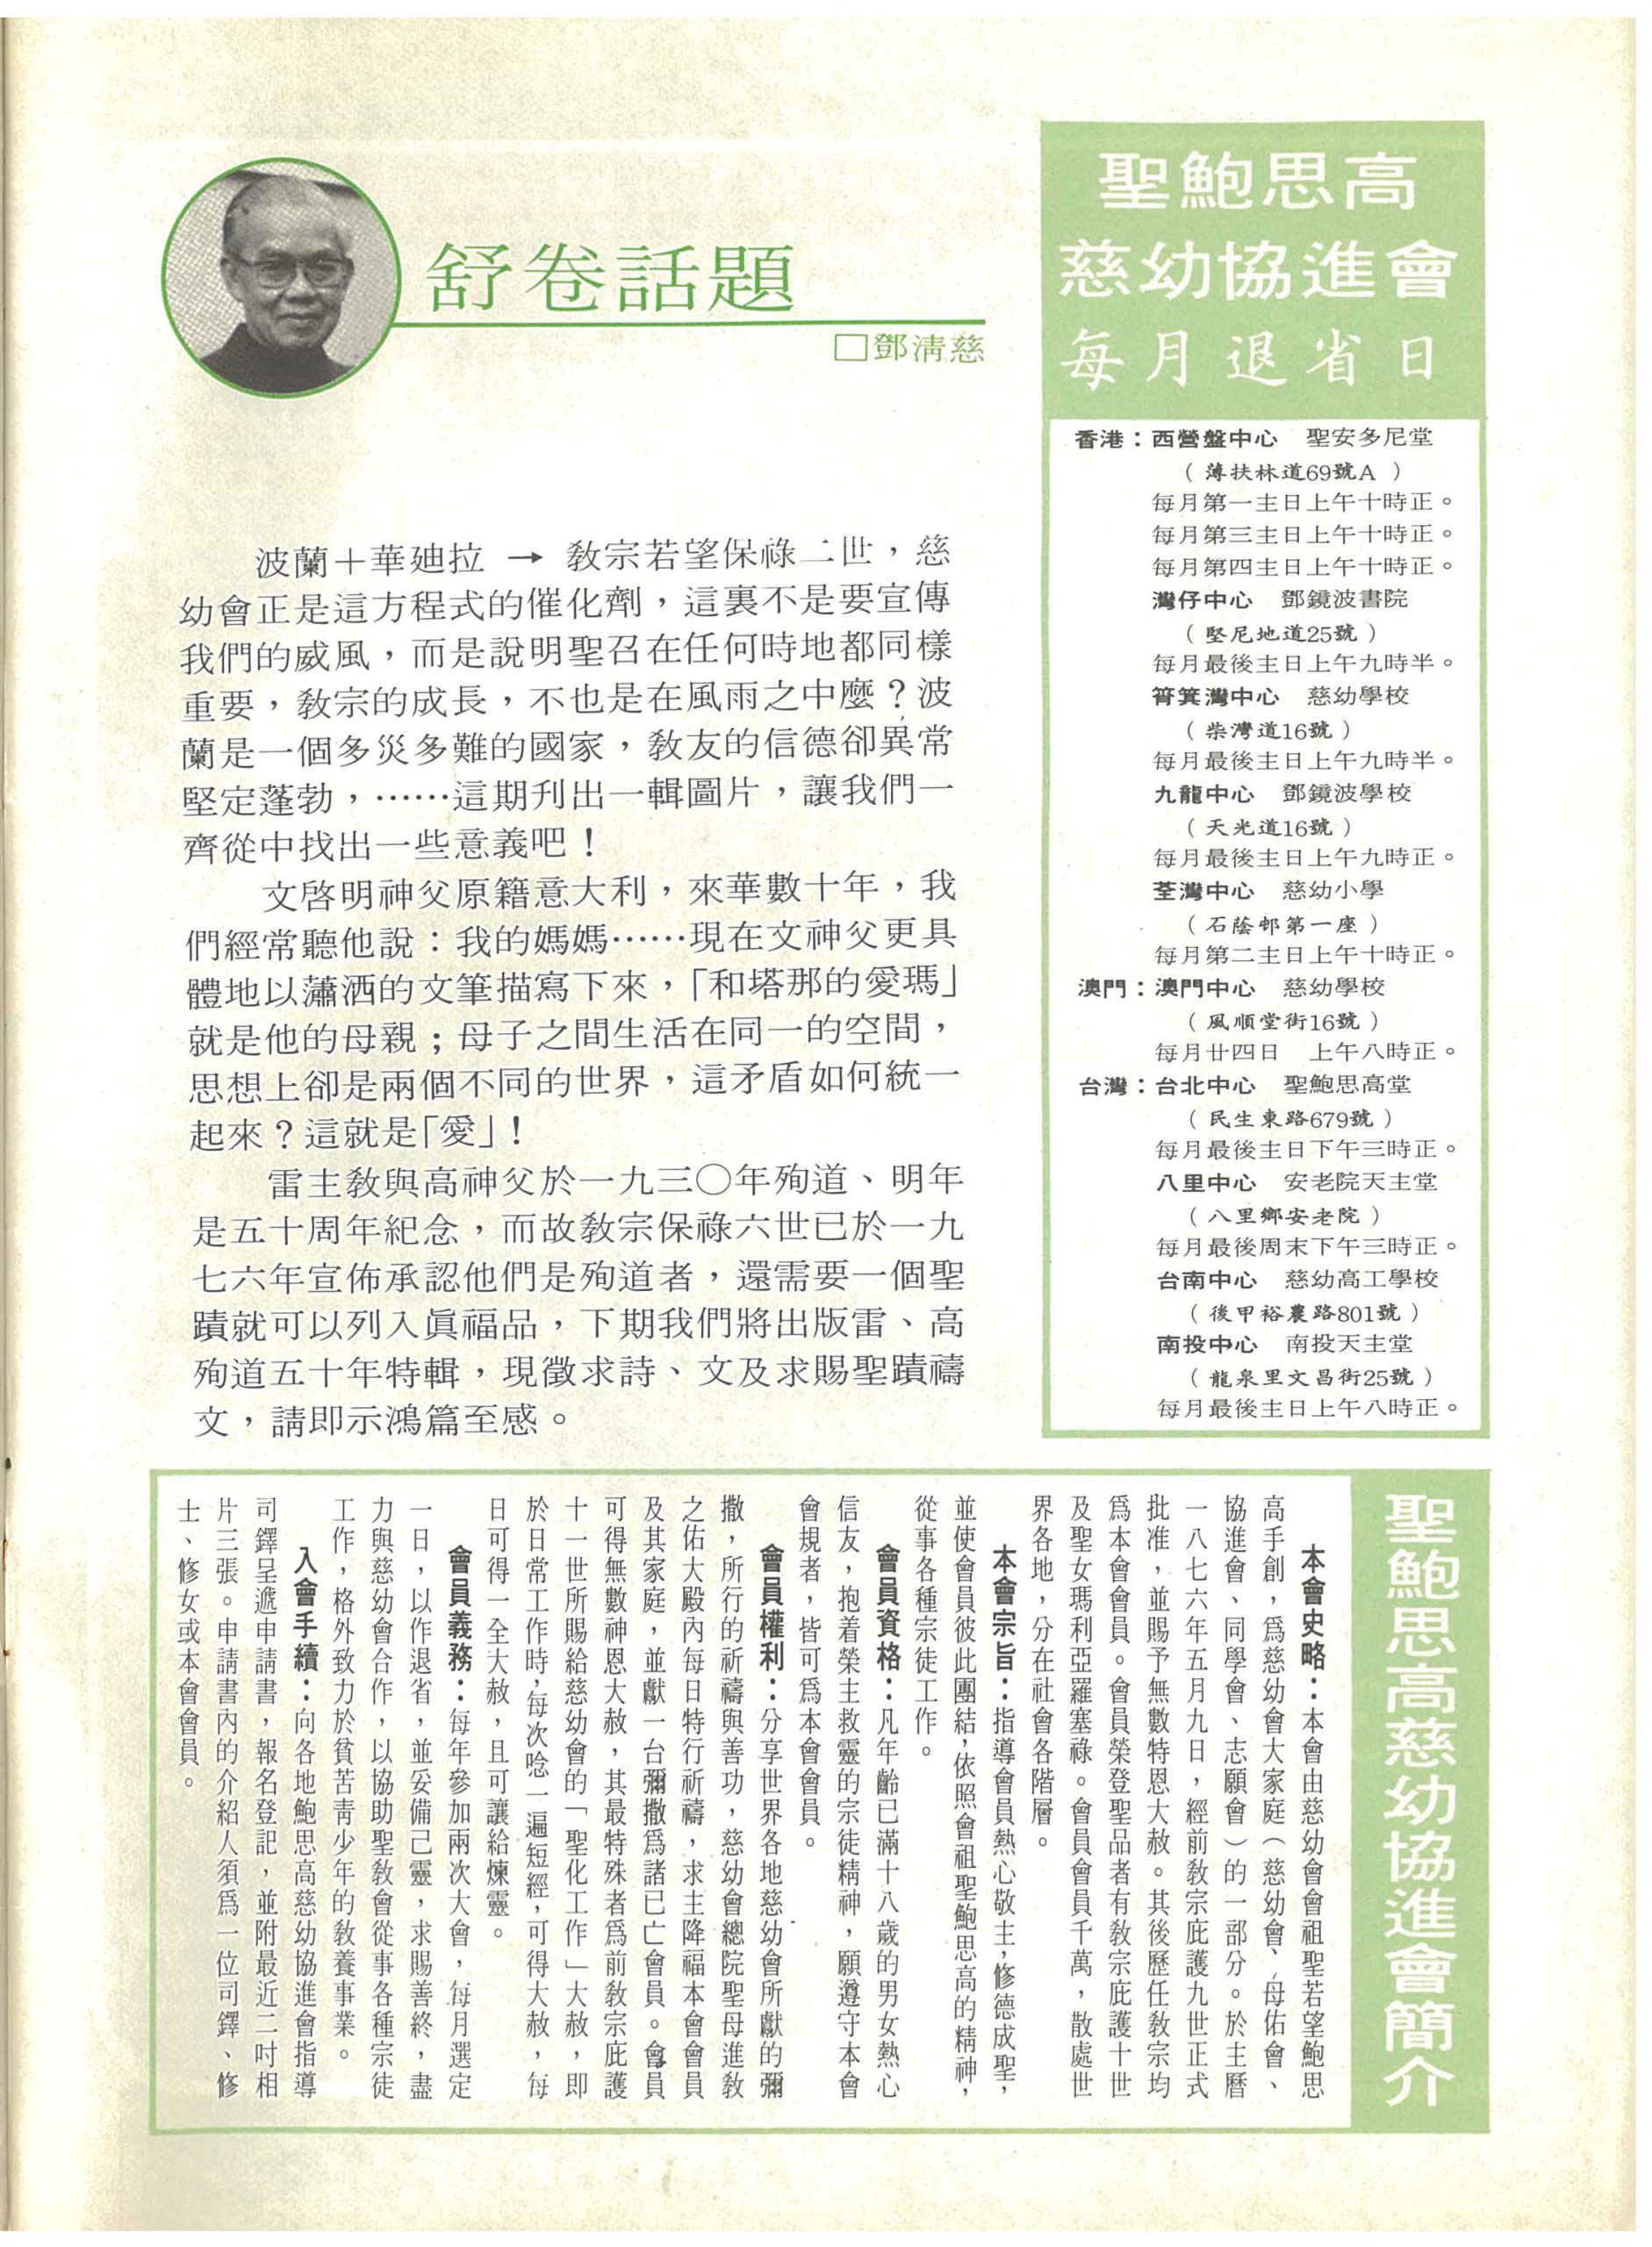 舒卷話題
□鄧清慈
波蘭＋華廸拉 → 教宗若望保祿二世，慈
幼會正是這方程式的催化劑，這裏不是要宣傳
我們的威風，而是說明聖召在任何時地都同樣
重要，教宗的成長，不也是在風雨之中麼？波
蘭是一個多災多難的國家，教友的信德卻異常
堅定蓬勃，……這期刋出一輯圖片，讓我們一
齊從中找出一些意義吧！
文啓明神父原籍意大利，來華數十年，我
們經常聽他說：我的媽媽……現在文神父更具
體地以瀟洒的文筆描寫下來，「和塔那的愛瑪」
就是他的母親；母子之間生活在同一的空間，
思想上卻是兩個不同的世界，這矛盾如何統一
起來？這就是「愛」！
雷主教與高神父於一九三〇年殉道、明年
是五十周年紀念，而故教宗保祿六世已於一九
七六年宣佈承認他們是殉道者，還需要一個聖
蹟就可以列入眞福品，下期我們將出版雷、高
殉道五十年特輯，現徵求詩、文及求賜聖蹟禱
文，請即示鴻篇至感。
聖鮑思高
慈幼協進會
每月退省日
香港：西營盤中心　聖安多尼堂
（薄扶林道69號A）
每月第一主日上午十時正。
每月第三主日上午十時正。
每月第四主日上午十時正。
灣仔中心　鄧鏡波書院
（堅尼地道25號）
每月最後主日上午九時半。
筲箕灣中心　慈幼學校
（柴灣道16號）
每月最後主日上午九時半。
九龍中心　鄧鏡波學校
（天光道16號）
每月最後主日上午九時正。
荃灣中心　慈幼小學
（石蔭邨第一座）
每月第二主日上午十時正。
澳門：澳門中心　慈幼學校
（風順堂街16號）
每月廿四日　上午八時正。
台灣：台北中心　聖鮑思高堂
（民生東路679號）
每月最後主日下午三時正。
八里中心　安老院天主堂
（八里鄉安老院）
每月最後周末下午三時正。
台南中心　慈幼高工學校
（後甲裕農路801號）
南投中心　南投天主堂
（龍泉里文昌街25號）
每月最後主日上午八時正。
聖鮑思高慈幼協進會簡介
本會史略：本會由慈幼會會祖聖若望鮑思
高手創，爲慈幼會大家庭（慈幼會、母佑會、
協進會、同學會、志願會）的一部分。於主曆
一八七六年五月九日，經前教宗庇護九世正式
批准，並賜予無數特恩大赦。其後歷任教宗均
爲本會會員。會員榮登聖品者有教宗庇護十世
及聖女瑪利亞羅塞祿。會員會員千萬，散處世
界各地，分在社會各階層。
本會宗旨：指導會員熱心敬主，修德成聖，
並使會員彼此團結，依照會祖聖鮑思高的精神，
從事各種宗徒工作。
會員資格：凡年齡已滿十八歲的男女熱心
信友，抱着榮主救靈的宗徒精神，願遵守本會
會規者，皆可爲本會會員。
會員權利：分享世界各地慈幼會所獻的彌
撒，所行的祈禱與善功，慈幼會總院聖母進教
之佑大殿內每日特行祈禱，求主降福本會會員
及其家庭，並獻一台彌撒爲諸已亡會員。會員
可得無數神恩大赦，其最特殊者爲前教宗庇護
十一世所賜給慈幼會的「聖化工作」大赦，即
於日常工作時，每次唸一遍短經，可得大赦，每
日可得一全大赦，且可讓給煉靈。
會員義務：每年參加兩次大會，每月選定
一日，以作退省，並妥備己靈，求賜善終，盡
力與慈幼會合作，以協助聖教會從事各種宗徒
工作，格外致力於貧苦靑少年的教養事業。
入會手續：向各地鮑思高慈幼協進會指導
司鐸呈遞申請書，報名登記，並附最近二吋相
片三張。申請書內的介紹人須爲一位司鐸、修
士、修女或本會會員。